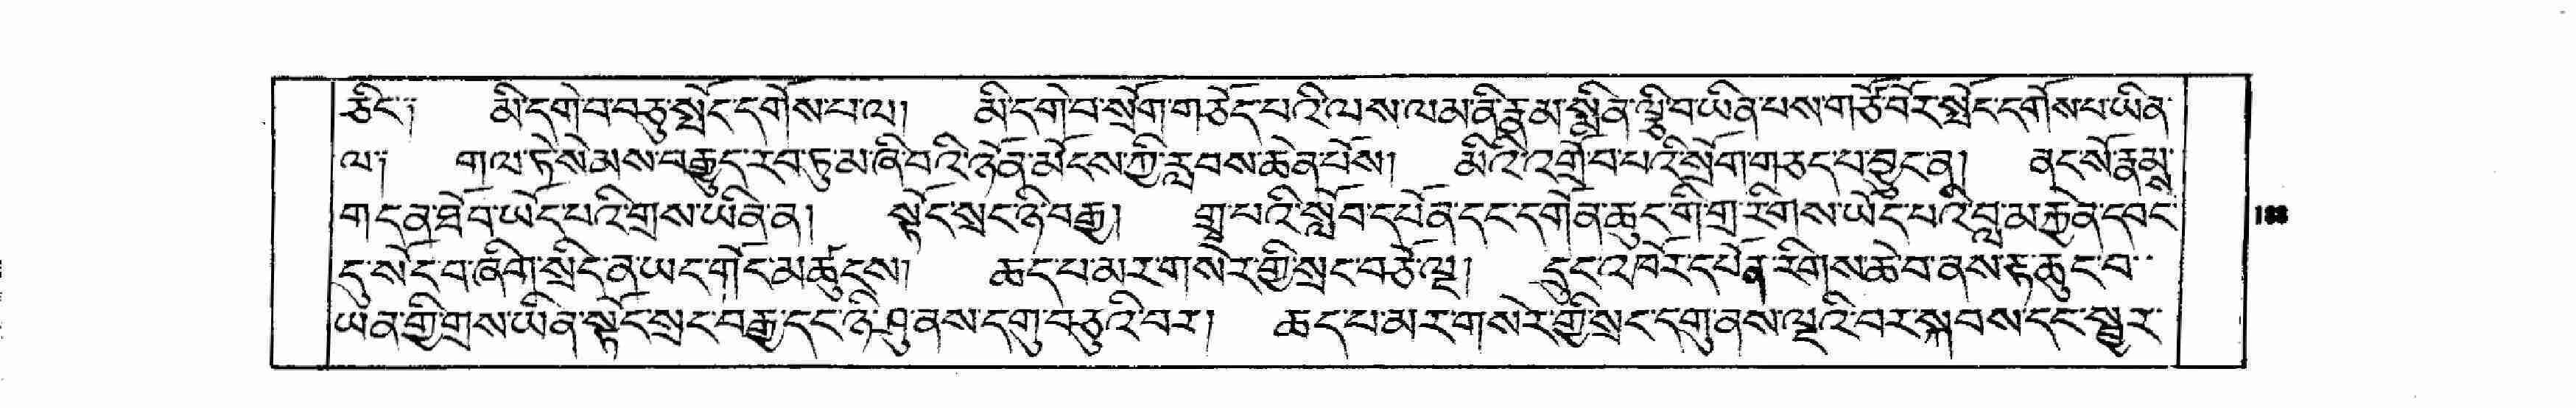 ཅིང་། མི་དགེ་བ་བཅུ་སྤོང་དགོས་པ་ལ། མི་དགེ་བ་སྲོག་གཅོད་པའི་ལས་ལམ་ནི་རྣམ་སྨིན་ལྕི་བ་ཡིན་པས་གཙོ་བོར་སྤོང་དགོས་པ་ཡིན་
ལ། གལ་ཏེ་སེམས་བརྒྱུད་རབ་ཏུ་མ་ཞི་བའི་ཉོན་མོངས་ཀྱི་རླབས་ཆེན་པོས། མིའི་འགྲོ་བ་པའི་སྲོག་གཅད་པ་བྱུང་ན། ནང་སོ་རྣམ་
གདན་ཐོབ་ཡོད་པའི་གྲས་ཡིན་ན། སྟོང་སྲང་ཉི་བརྒྱ། གྲྭ་པའི་སློབ་དཔོན་དང་དགོན་ཆུང་གི་གྲ་རིགས་ཡོད་པའི་བླ་མ་རྐྱེན་དབང་
དུ་སོང་བ་ཞིག་སྲིད་ན་ཡང་གོང་མཚུངས། ཆད་པ་མར་གསེར་གྱི་སྲང་བཅོ་ལྔ། དྲུང་འཁོར་དཔོན་རིགས་ཆེ་བ་ནས་རྟ་ཆུང་བ་
ཡན་གྱི་གྲས་ཡིན་སྟོང་སྲང་བརྒྱ་དང་ཉི་ཤུ་ནས་དགུ་བཅུའི་བར། ཆད་པ་མར་གསེར་གྱི་སྲང་དགུ་ནས་ལྔའི་བར་སྐབས་དང་སྦྱར་